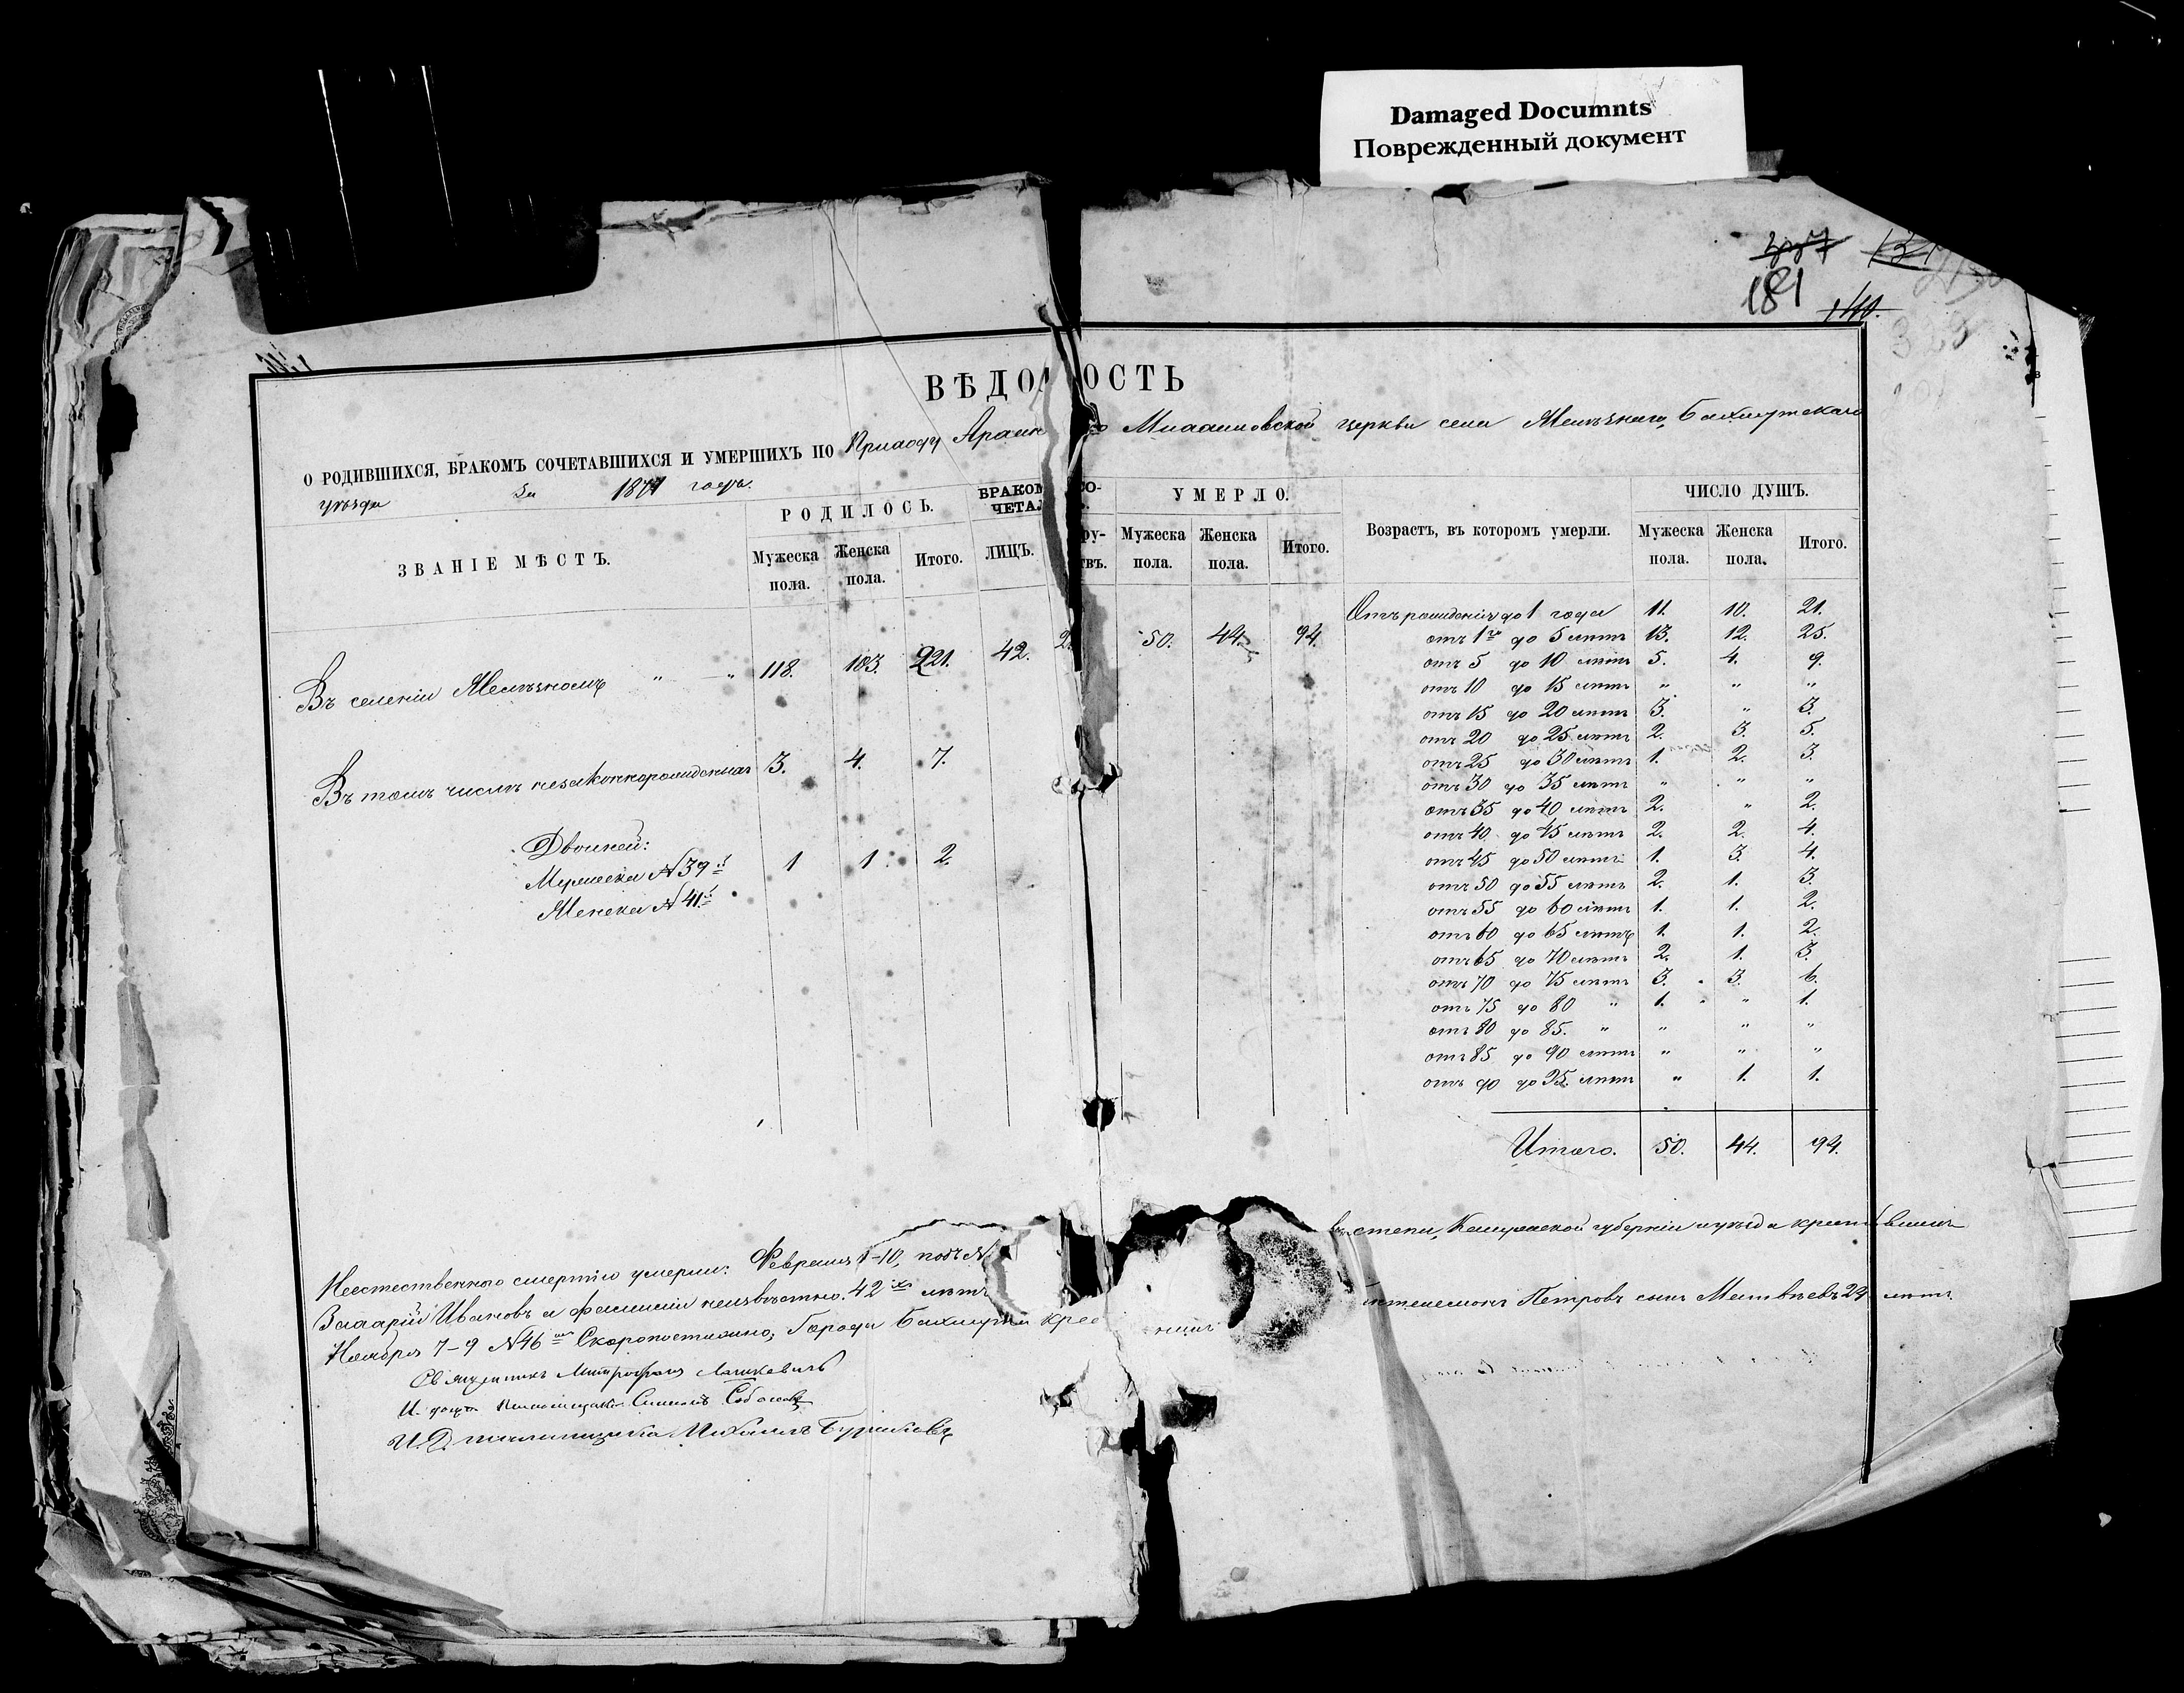 Damaged Documnts
Поврежденный документ
337
181
140.
ВѢДОМОСТЬ
О РОДИВШИХСЯ, БРАКОМЪ СОЧЕТАВШИХСЯ И УМЕРШИХЪ ПО Приходу церкви села Бахмутскаго
уѣзда за 1871 годъ.
ЗВАНІЕ МѢСТЪ.
РОДИЛОСЬ.
Мужеска пола. Женска пола. Итого.
ЛИЦЪ.
УМЕРЛО.
Мужеска пола. Женска пола. Итого.
Возрастъ, въ которомъ умерли.
ЧИСЛО ДУШЪ.
Мужеска пола. Женска пола. Итого.
Въ селеніи " " 118. 103. 221. 42. 50. 44. 94.
Въ томъ числѣ незаконнорожденныхъ 3. 4. 7.
Двойней:
Мужеска №39й 1 1 2
Женска №41й
Отъ рожденія до 1 года 11. 10. 21.
отъ 1го до 5 лѣтъ 13. 12. 25.
отъ 5 до 10 лѣтъ 5. 4. 9.
отъ 10 до 15 лѣтъ " " "
отъ 15 до 20 лѣтъ 3. " 3.
отъ 20 до 25 лѣтъ 2. 3. 5.
отъ 25 до 30 лѣтъ 1. 2. 3.
отъ 30 до 35 лѣтъ " " "
отъ 35 до 40 лѣтъ 2. " 2.
отъ 40 до 45 лѣтъ 2. 2. 4.
отъ 45 до 50 лѣтъ 1. 3. 4.
отъ 50 до 55 лѣтъ 2. 1. 3.
отъ 55 до 60 лѣтъ 1. 1. 2.
отъ 60 до 65 лѣтъ 1. 1. 2.
отъ 65 до 70 лѣтъ 2. 1. 3.
отъ 70 до 75 лѣтъ 3. 3. 6.
отъ 75 до 80 " 1. " 1.
отъ 80 до 85. " " " "
отъ 85 до 90 лѣтъ " " "
отъ 90 до 95 лѣтъ " 1. 1.
Итого. 50. 44. 94.
Неестественною смертію умерли: Февраля 1-10, подъ № въ степи, Калужской губерніи и уѣзда
Захарій Ивановъ а фамиліи неизвѣстно. 42хъ лѣтъ
Ноября 7-9 №46 Скоропостижно, Города Бахмута Петровъ сынъ Матвѣевъ 29 лѣтъ.
Священникъ Митрофанъ
И. долж. Псаломщика
И. Д. псаломщика Михаилъ Бураковъ